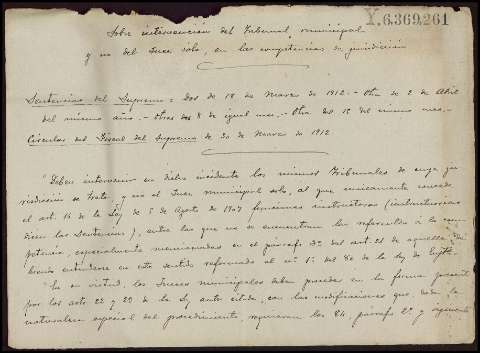 Y.6.369.261
Sobre intervención del Tribunal municipal
y no del Juez solo, en las competencias de jurisdicción
Sentencias del Supremo: Dos de 18 de Marzo de 1912.- Otra de 2 de Abril
del mismo año.- Otras dos 8 de igual mes.- Otra del 15 del mismo mes.
Circular del Fiscal del Supremo de 30 de Marzo de 1912
"Deben intervenir en dichos incidentes los mismos Tribunales de cuya ju-
risdicción se trata, y no el Juez municipal solo, al que únicamente concede
el art. 16 de la Ley de 5 de Agosto de 1907 funciones instructoras
dicen las Sentencias), entre las que no se encuentran las referentes á la com-
petencia, especialmente mencionadas en el párrafo 3º del art. 21 de aquella,
entenderse en este sentido reformado el nº 1º del 80 de la ley de
"En su virtud, los Jueces municipales deben proceder en la forma
por los arts 22 y 29 de la ley antes citada, con las modificaciones que, dada la
naturaleza especial del procedimiento, requieren los 84, párrafo 2º y siguientes